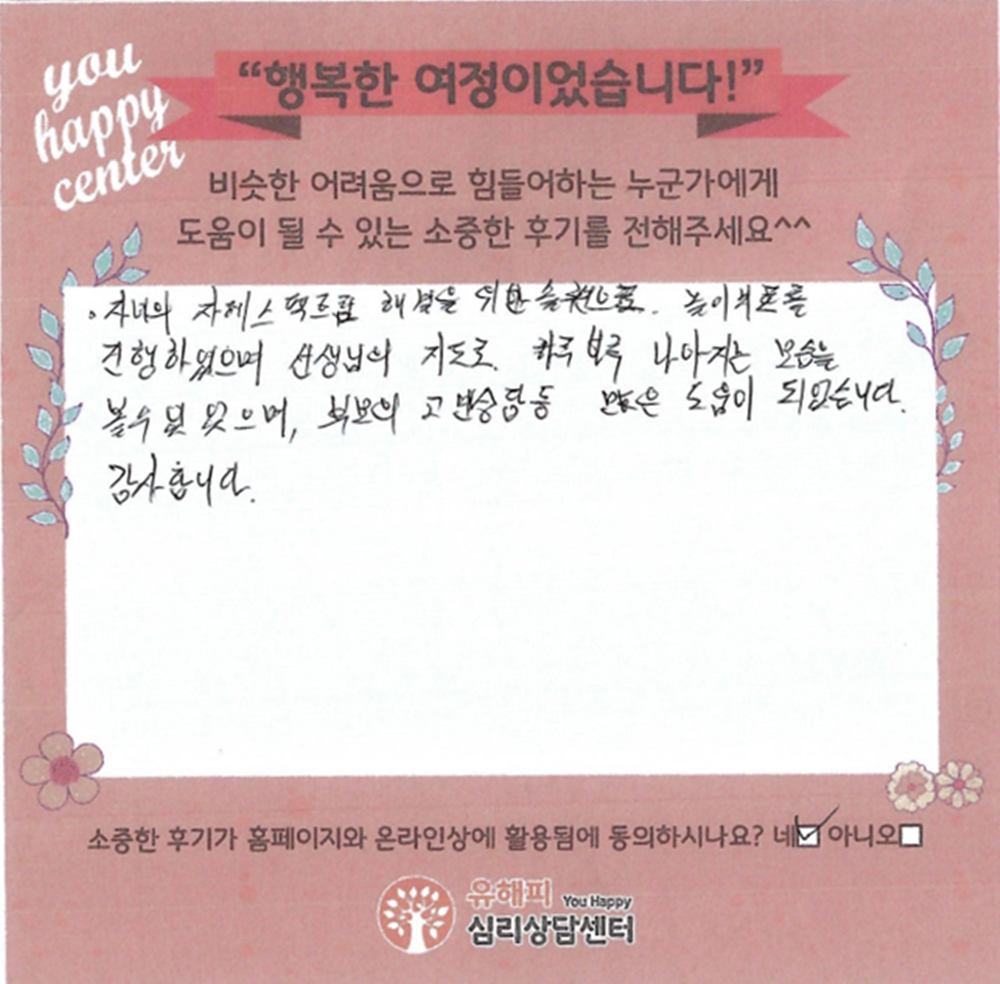 you
happy
center
“행복한 여정이었습니다!”
비슷한 어려움으로 힘들어하는 누군가에게
도움이 될 수 있는 소중한 후기를 전해주세요^^
. 자녀의 스펙트럼 해결을 위한 놀이
진행하였으며 선생님의 지도로 하루 나아지는 모습을
볼수 있으며, 부모의 고민상담등 많은 도움이 되었습니다.
감사합니다.
소중한 후기가 홈페이지와 온라인상에 활용됨에 동의하시나요? 네 아니오
유해피 You Happy
심리상담센터